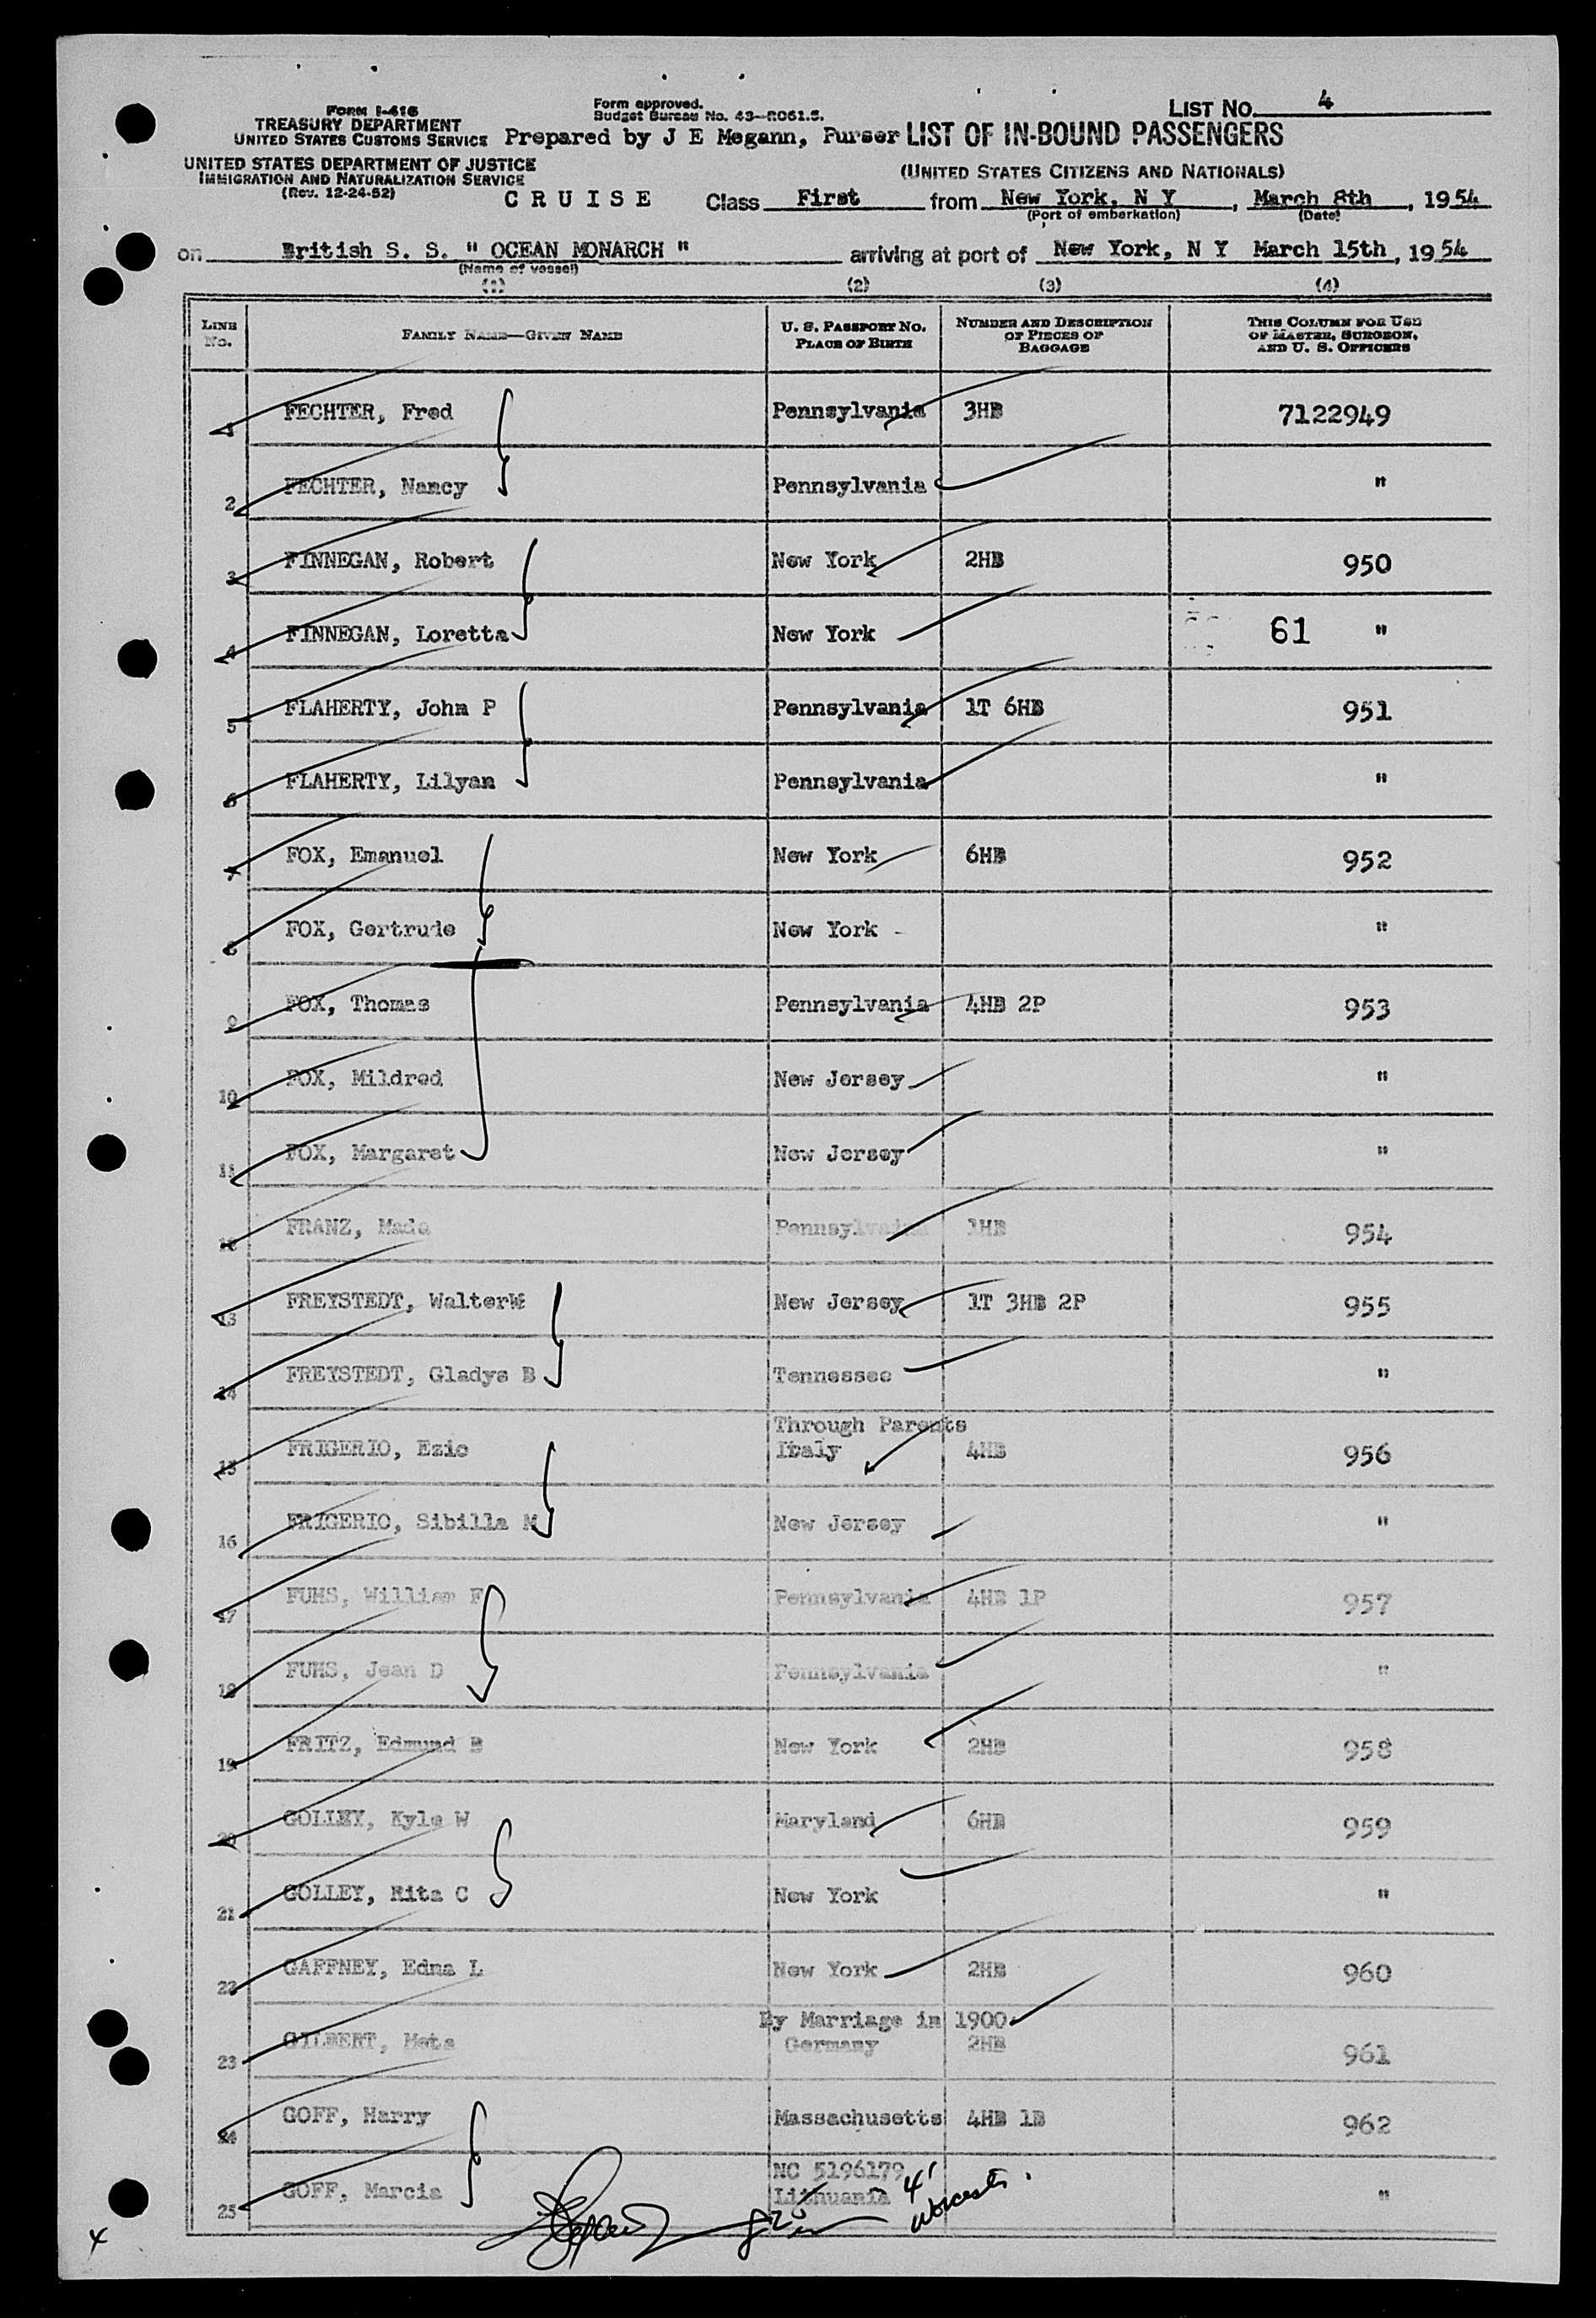 Form I-416
TREASURY DEPARTMENT
UNITED STATES CUSTOMS SERVICE
UNITED STATES DEPARTMENT OF JUSTICE
IMMIGRATION AND NATURALIZATION SERVICE
(Rev. 12-24-52)
Form approved.
Budget Bureau No. 43-R061.5.
Prepared by J E Megann, Purser
LIST NO. 4
LIST OF IN-BOUND PASSENGERS
(UNITED STATES CITIZENS AND NATIONALS)
CRUISE Class First from New York, N Y, March 8th, 1954
(Port of embarkation) (Date)
on British S. S. " OCEAN MONARCH " arriving at port of New York, N Y March 15th, 1954
(Name of vessel)
(1) (2) (3) (4)
LINE No. FAMILY NAME—GIVEN NAME U. S. PASSPORT NO. PLACE OF BIRTH NUMBER AND DESCRIPTION OF PIECES OF BAGGAGE THIS COLUMN FOR USE OF MASTER, SURGEON, AND U. S. OFFICERS
1 FECHTER, Fred Pennsylvania 3HB 7122949
2 FECHTER, Nancy Pennsylvania "
3 FINNEGAN, Robert New York 2HB 950
4 FINNEGAN, Loretta New York 61 "
5 FLAHERTY, John P Pennsylvania 1T 6HB 951
6 FLAHERTY, Lilyan Pennsylvania "
7 FOX, Emanuel New York 6HB 952
8 FOX, Gertrude New York "
9 FOX, Thomas Pennsylvania 4HB 2P 953
10 FOX, Mildred New Jersey "
11 FOX, Margaret New Jersey "
12 FRANZ, Pennsylvania 1HB 954
13 FREYSTEDT, WalterW New Jersey 1T 3HB 2P 955
14 FREYSTEDT, Gladys B Tennessee "
Through Parents
15 FRIGERIO, Ezio Italy 4HB 956
16 FRIGERIO, Sibilla M New Jersey "
17 FUHS, William F Pennsylvania 4HB 1P 957
18 FUHS, Jean D Pennsylvania "
19 FRITZ, Edmund B New York 2HB 958
20 GOLLEY, Kyle W Maryland 6HB 959
21 GOLLEY, Rita C New York "
22 GAFFNEY, Edna L New York 2HB 960
By Marriage in 1900
23 GILBERT, Meta Germany 2HB 961
24 GOFF, Harry Massachusetts 4HB 1B 962
NC 5196179
25 GOFF, Marcia Lithuania "
4